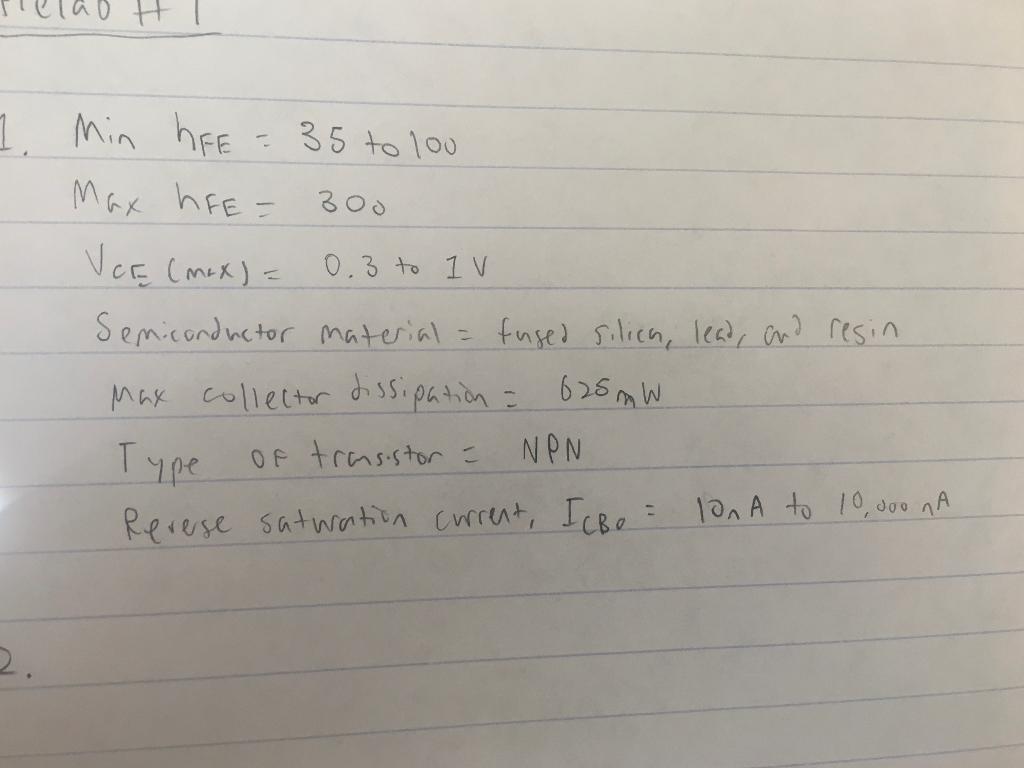 Prelab #1
1. Min hFE = 35 to 100
Max hFE = 300
VCE (max) = 0.3 to 1 V
Semiconductor material = fused silica, lead, and resin
Max collector dissipation = 625mW
Type OF transistor = NPN
Reverse saturation current, ICBO = 10nA to 10,000 nA
2.